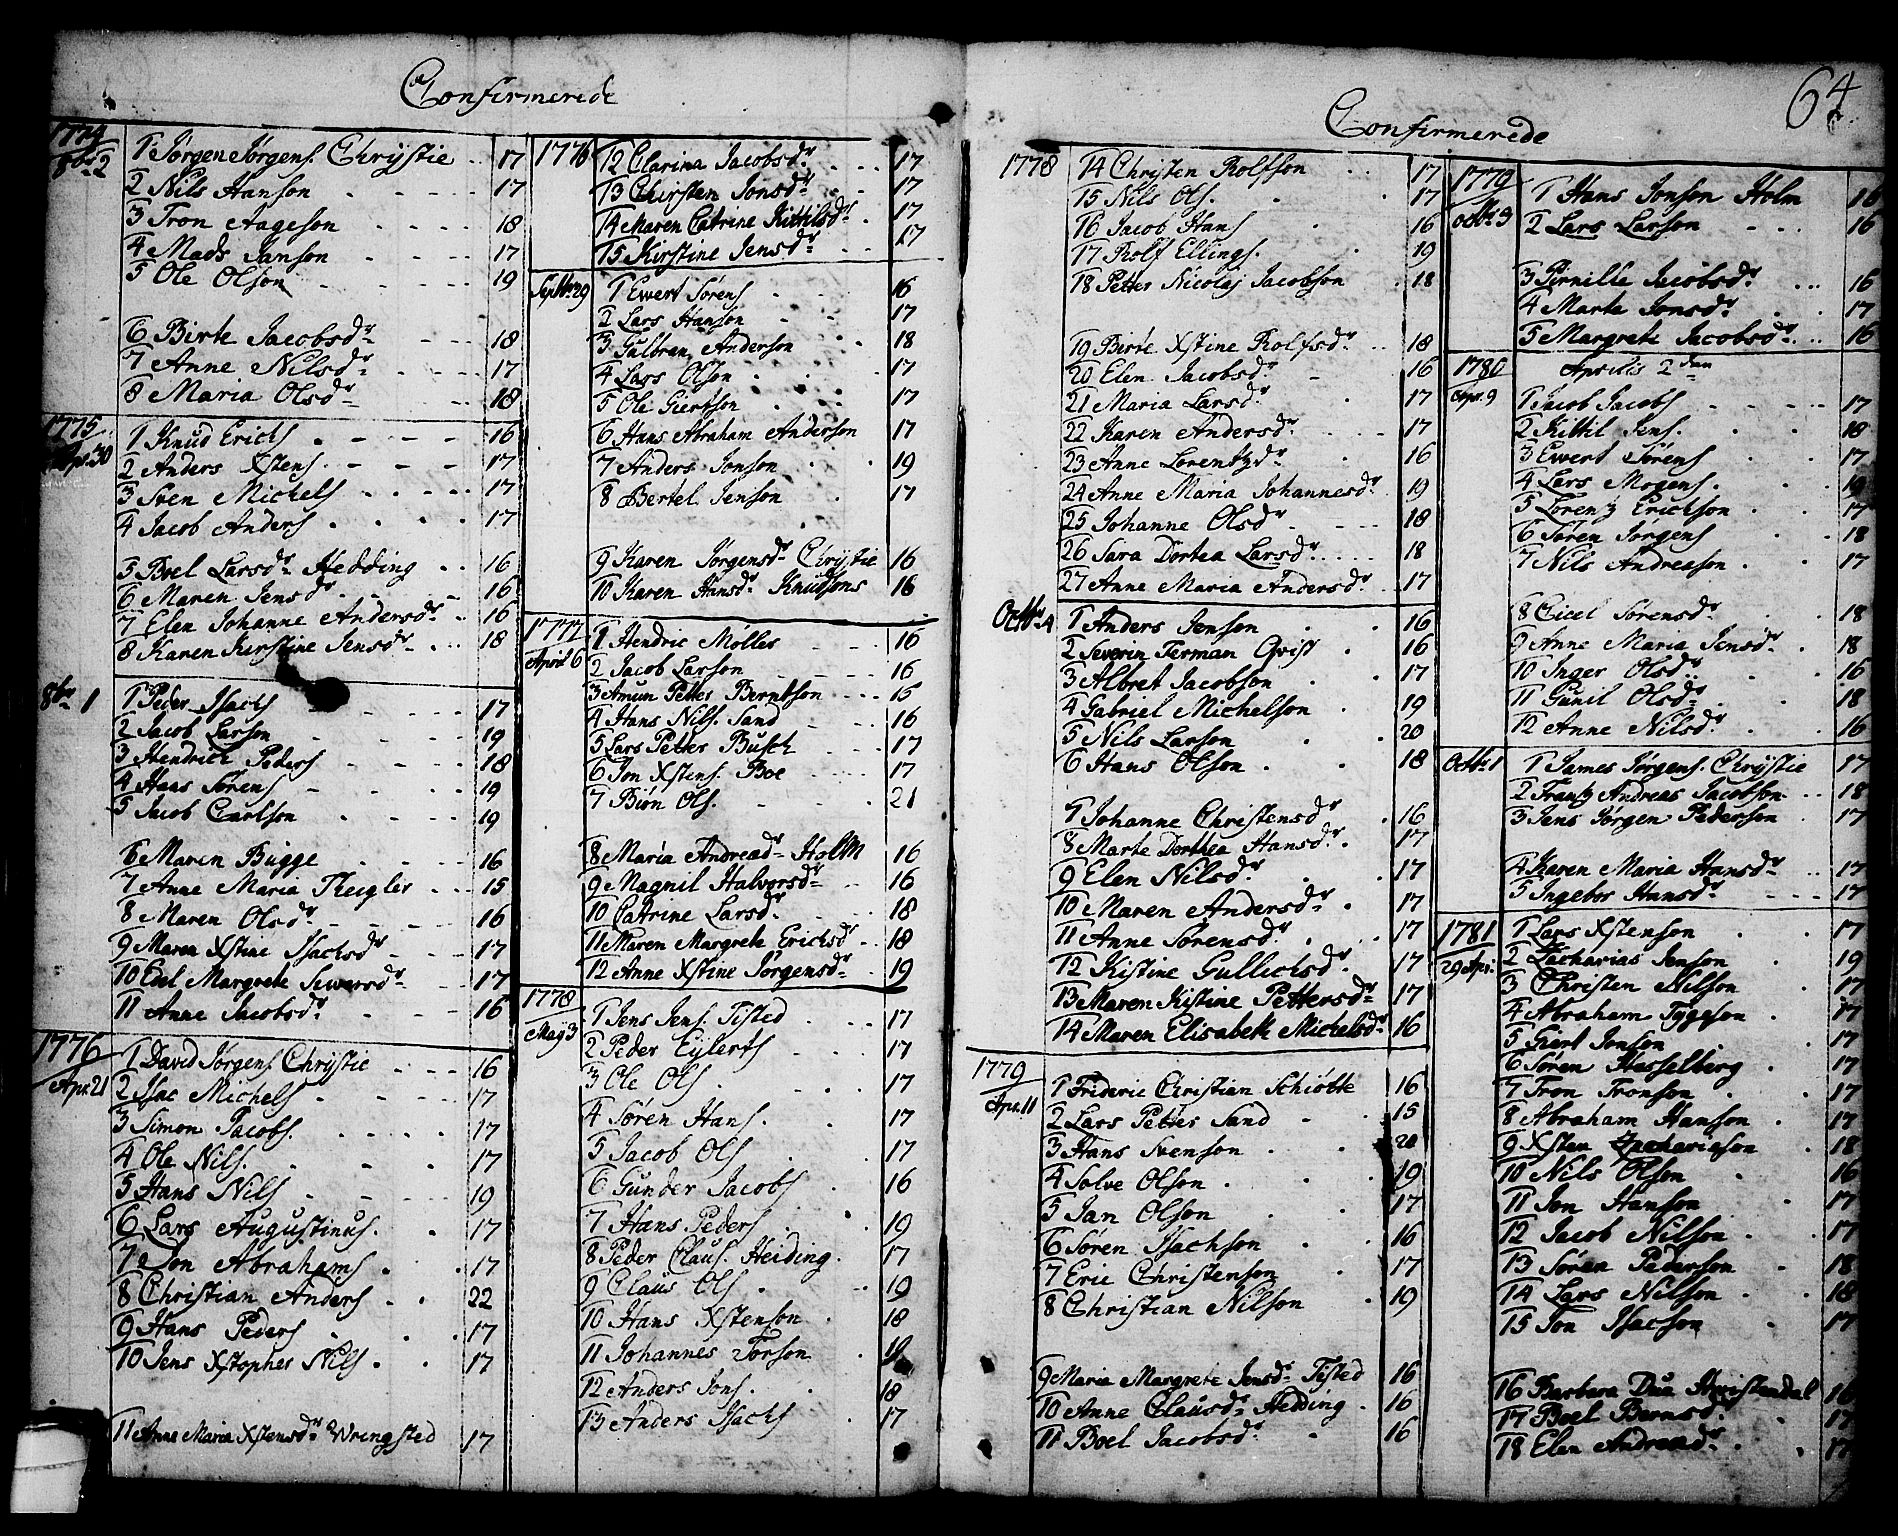 Confirmerede
1774
8br 2
1 Jørgen Jørgens. Chrystie 17
2 Nils Hanson 17
3 Tron Aageson 18
4 Mads Janson 17
5 Ole Olson 19
6 Birte Jacobsdr 18
7 Anne Nilsdr 17
8 Maria Olsdr 18
1775
Apr. 30
1 Knud Erichs 16
2 Anders Xstens. 17
3 Sven Michels 17
4 Jacob Anders 17
5 Boel Larsdr Hedding 16
6 Maren Jensdr 16
7 Elen Johanne Andersdr 16
8 Karen Kirstine Jensdr 18
8br 1
1 Peder Isachs 17
2 Jacob Larson 19
3 Hendrich Peders 18
4 Hans Sørens 19
5 Jacob Carlson 19
6 Maren Bugge 16
7 Anne Maria Theigler 15
8 Maren Olsdr 16
9 Maren Xstine Isachsdr 17
10 Edel Margrete Sewersdr 17
11 Anne Jacobsdr 16
1776
Apr. 21
1 David Jørgens. Chrystie 16
2 Isac Michels 17
3 Simon Jacobs. 17
4 Ole Nils. 17
5 Hans Nils 19
6 Lars Augustinus. 17
7 Jon Abrahams 17
8 Christian Anders 22
9 Hans Peders 17
10 Jens Xstopher Nils 17
11 Anne Maria Xstensdr Wringsted 17
1776
12 Clarina Jacobsdr 17
13 Chirsten Jonsdr 17
14 Maren Catrine Kittilsdr 17
15 Kirstine Jensdr 17
Septbr 29
1 Ewert Sørens 16
2 Lars Hanson 17
3 Gulbran Anderson 18
4 Lars Olson 17
5 Ole Giertson 17
6 Hans Abraham Anderson 17
7 Anders Jonson 19
8 Bertel Jenson 17
9 Karen Jørgensdr Chrystie 16
10 Karen Hansdr Knudsons 16
1777
April 6
1 Hendric Møller 16
2 Jacob Larson 16
3 Amun Petter Berntson 15
4 Hans Nils. Sand 16
5 Lars Petter Busch 17
6 Jon Xstens. Boe 17
7 Biørn Ols. 21
8 Maria Andreadr Holm 16
9 Magnil Halvorsdr 16
10 Catrine Larsdr 18
11 Maren Margrete Erichsdr 18
12 Anne Xstine Jørgensdr 19
1778
May 3
1 Jens Jens. Tisted 17
2 Peder Eylerts 17
3 Ole Ols. 17
4 Søren Hans. 17
5 Jacob Ols 17
6 Gunder Jacobs 16
7 Hans Peders 19
8 Peder Claus. Heiding 17
9 Claus Ols 19
10 Hans Xstenson 18
11 Johannes Torson 19
12 Anders Jons. 18
13 Anders Isachs 17
Confirmerede
64
1778
14 Christen Rolfson 17
15 Nils Ols. 17
16 Jacob Hans 16
17 Rolf Ellings. 19
18 Petter Nicolaj Jacobson 18
19 Birte Xstine Rolfsdr 18
20 Elen Jacobsdr 16
21 Maria Larsdr 17
22 Karen Andersdr 17
23 Anne Lorentzdr 16
24 Anne Maria Johannesdr 19
25 Johanne Olsdr 18
26 Sara Dortea Larsdr 18
27 Anne Maria Andersdr 17
Octbr 4
1 Anders Jenson 16
2 Severin Terman Qvist 16
3 Albret Jacobson 17
4 Gabriel Michelson 19
5 Nils Larson 20
6 Hans Olson 18
7 Johanne Christensdr 16
8 Marte Dorthea Hansdr 17
9 Elen Nilsdr 17
10 Maren Andersdr 17
11 Anne Sørensdr 17
12 Kistine Gullichsdr 17
13 Maren Kistine Pettersdr 17
14 Maren Elisabeth Michelsdr 16
1779
Apr. 11
1 Frideric Christian Schiøtte 16
2 Lars Petter Sand 15
3 Hans Svenson 20
4 Solve Olson 19
5 Jan Olson 17
6 Søren Isachson 16
7 Eric Christenson 17
8 Christian Nilson 19
9 Maria Margrete Jensdr Tisted 16
10 Anne Clausdr Hedding 16
11 Boel Jacobsdr 16
1779
Octbr 3
1 Hans Jonson Holm 16
2 Lars Larson 16
3 Pirnille Jacobsdr 16
4 Marte Jonsdr 17
5 Margrete Jacobsdr 16
1780
Aprilis 2den
Apr. 9
1 Jacob Jacobs 17
2 Kittil Jens. 18
3 Ewert Sørens 17
4 Lars Mogens. 19
5 Lorentz Erickson 17
6 Søren Jørgens 18
7 Nils Andreason 17
8 Cicel Sørensdr 18
9 Anne Maria Jensdr 18
10 Inger Olsdr 16
11 Gunil Olsdr 18
12 Anne Nilsdr 16
Octbr 1
1 James Jørgens. Chrystie 17
2 Frantz Andreas Jacobson 18
3 Jens Jørgen Pederson 17
4 Karen Maria Hansdr 17
5 Ingebor Hansdr 17
1781
29 Apr.
1 Lars Xstenson 17
2 Zacharias Jenson 19
3 Christen Nilson 17
4 Abraham Tygeson 17
5 Giert Jonson 17
6 Søren Hasselberg 17
7 Tron Tronson 17
8 Abraham Hanson 17
9 Xsten Zachariason 18
10 Nils Olson 16
11 Jon Hanson 17
12 Jacob Nilson 17
13 Søren Pederson 18
14 Lars Nilson 18
15 Jon Isacson 17
16 Barbara Dua Christendal 16
17 Boel Bernsdr 17
18 Elen Andreadr 17